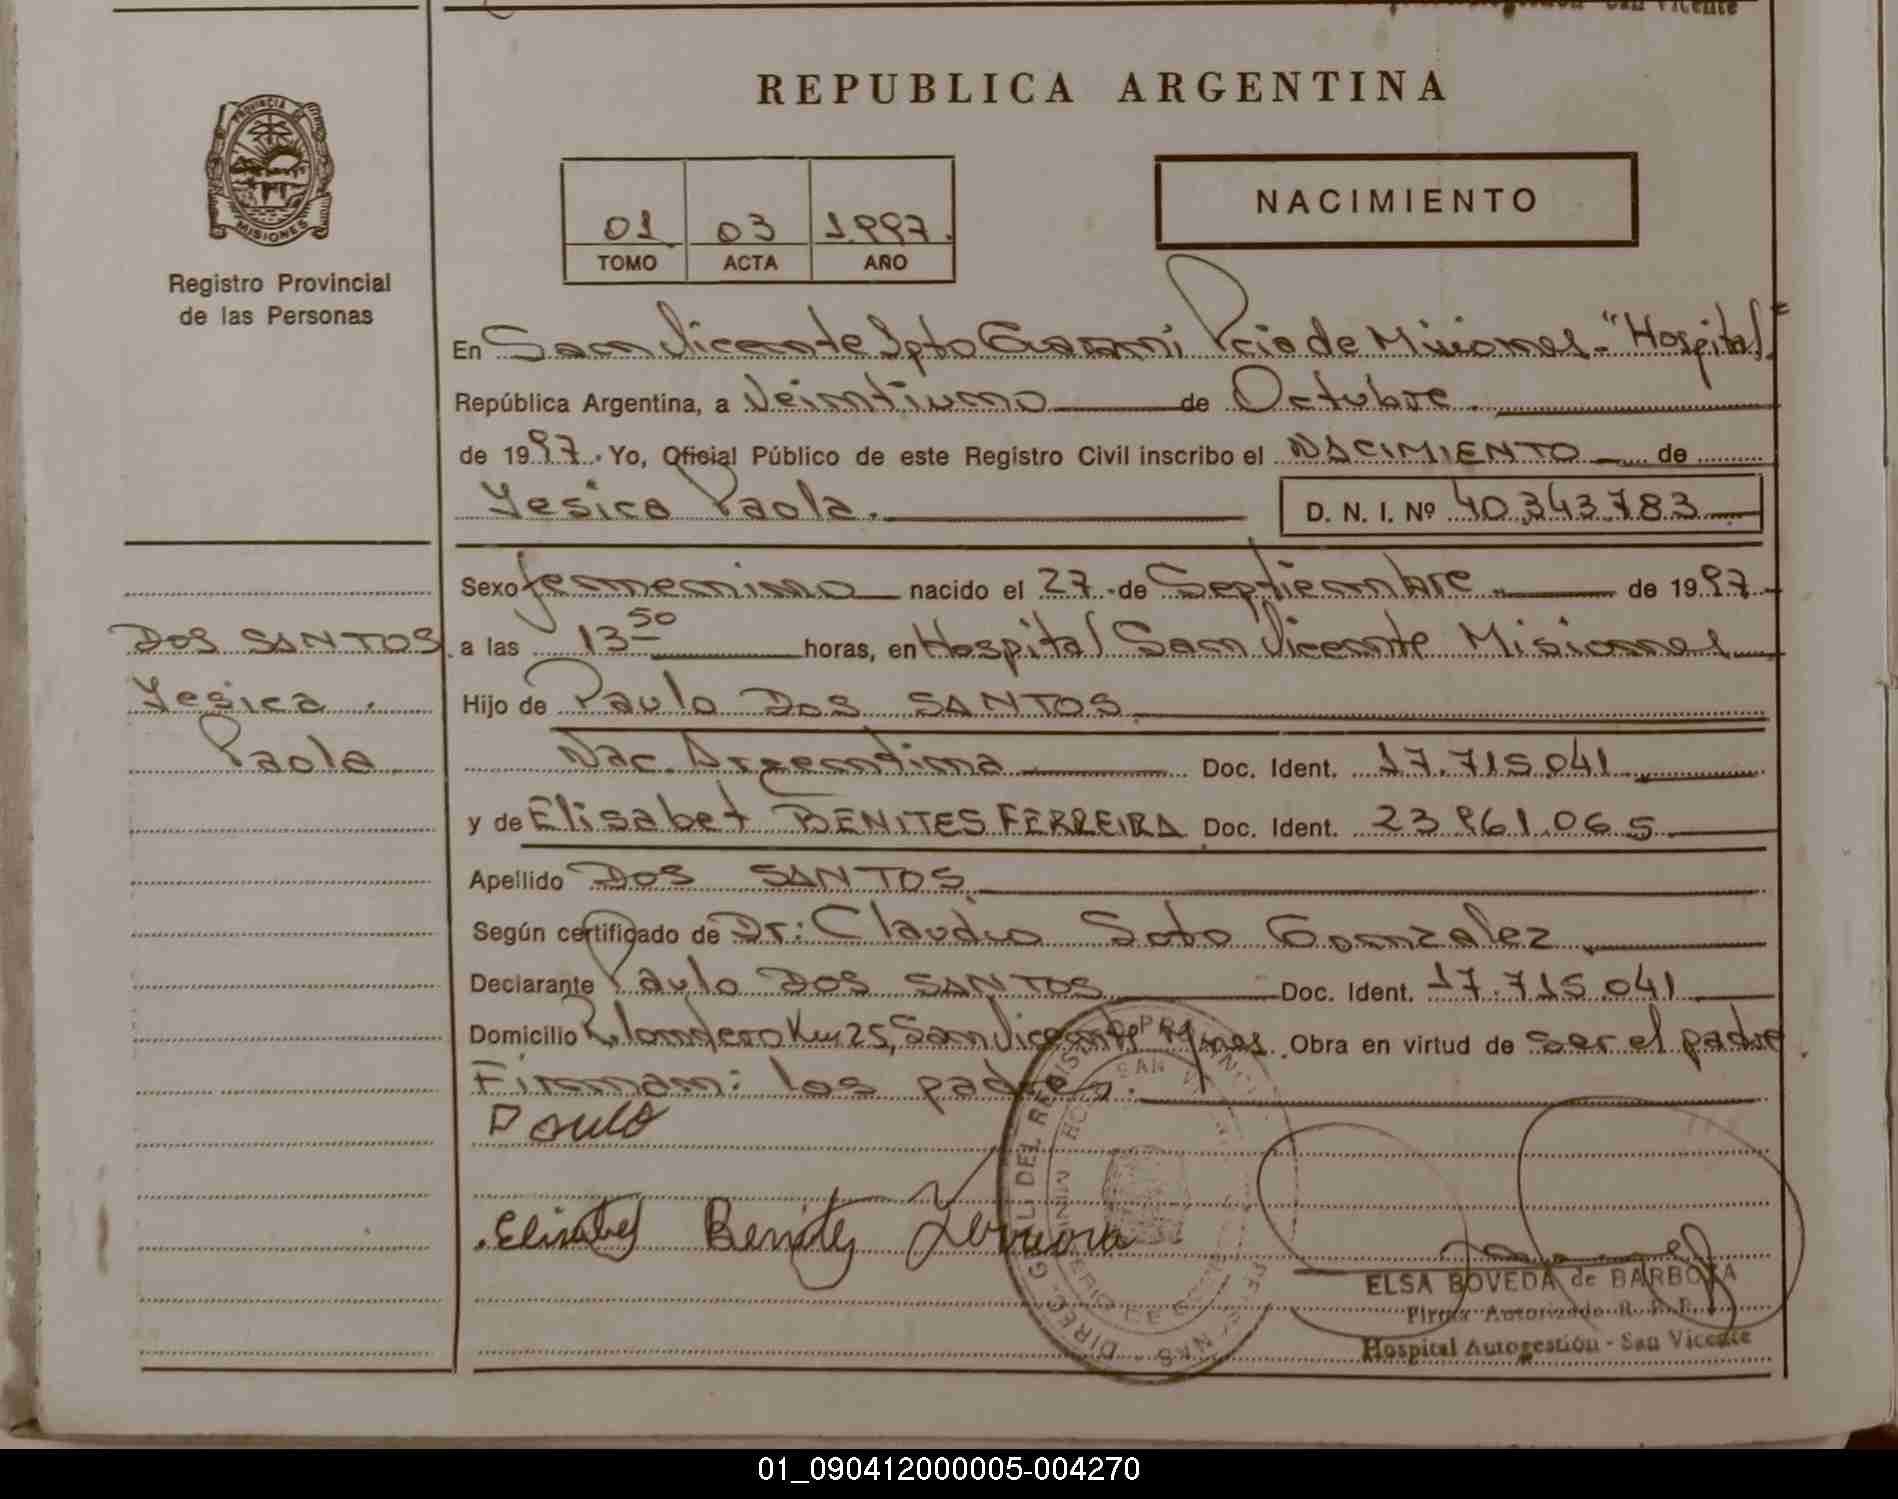 REPUBLICA ARGENTINA
PROVINCIA DE
MISIONES
Registro Provincial
de las Personas
01 03 1.997.
TOMO ACTA AÑO
NACIMIENTO
En San Vicente Dpto Guarani Pcia de Misiones - "Hospital"
República Argentina, a Veintiuno de Octubre.
de 1997. Yo, Oficial Público de este Registro Civil inscribo el NACIMIENTO de
Yesica Paola. D. N. I. Nº 40.343.783
Sexo femenino nacido el 27 de Septiembre de 1997
DOS SANTOS
Yesica
Paola
a las 13 50 horas, en Hospital San Vicente Misiones
Hijo de Paulo DOS SANTOS
Nac. Argentina Doc. Ident. 17.715.041
y de Elisabet BENITES FERREIRA Doc. Ident. 23.961.065
Apellido DOS SANTOS
Según certificado de Dr: Claudio Soto Gonzalez
Declarante Paulo DOS SANTOS Doc. Ident. 17.715.041
Domicilio Km 25, San Vicente Obra en virtud de ser el padre
Firman: los padres.
Paulo
Elisabet Benites Ferreira
ELSA BOVEDA de BARBOZA
Firma Autorizada R. P. P.
Hospital Autogestión - San Vicente
01_090412000005-004270